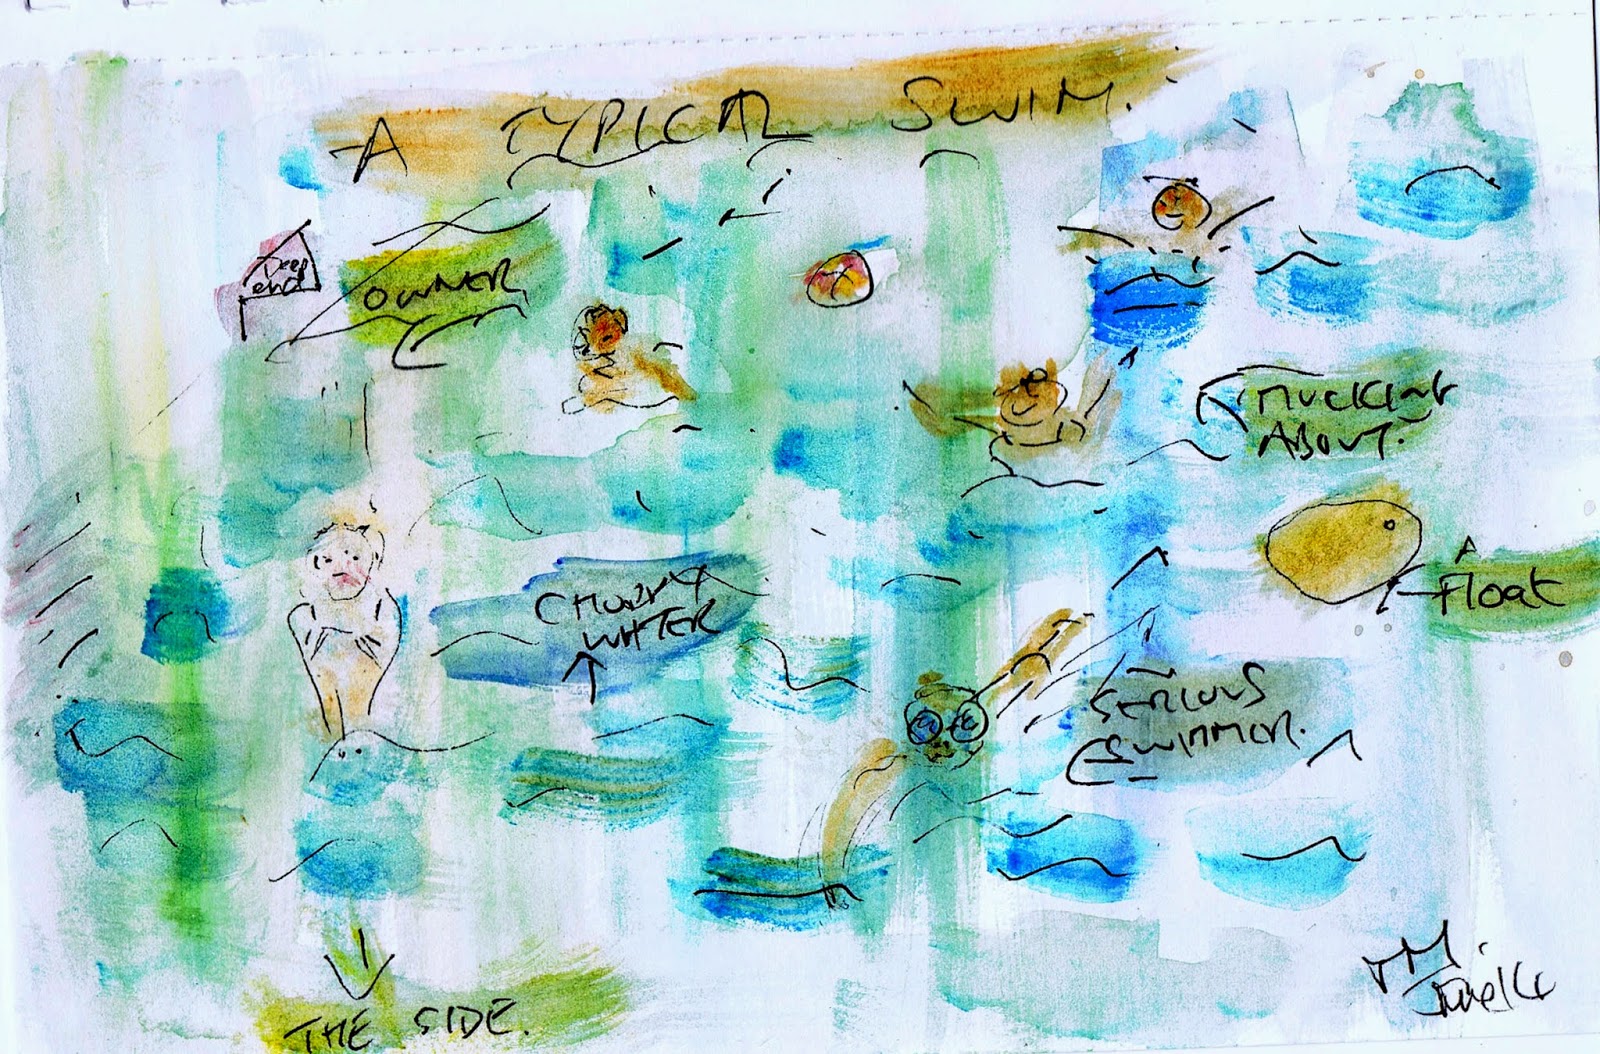 A TYPICAL SWIM.
Deep
end
OWNER
MUCKING
ABOUT.
A
Float
CHOPPY
WATER
SERIOUS
SWIMMER.
THE SIDE.